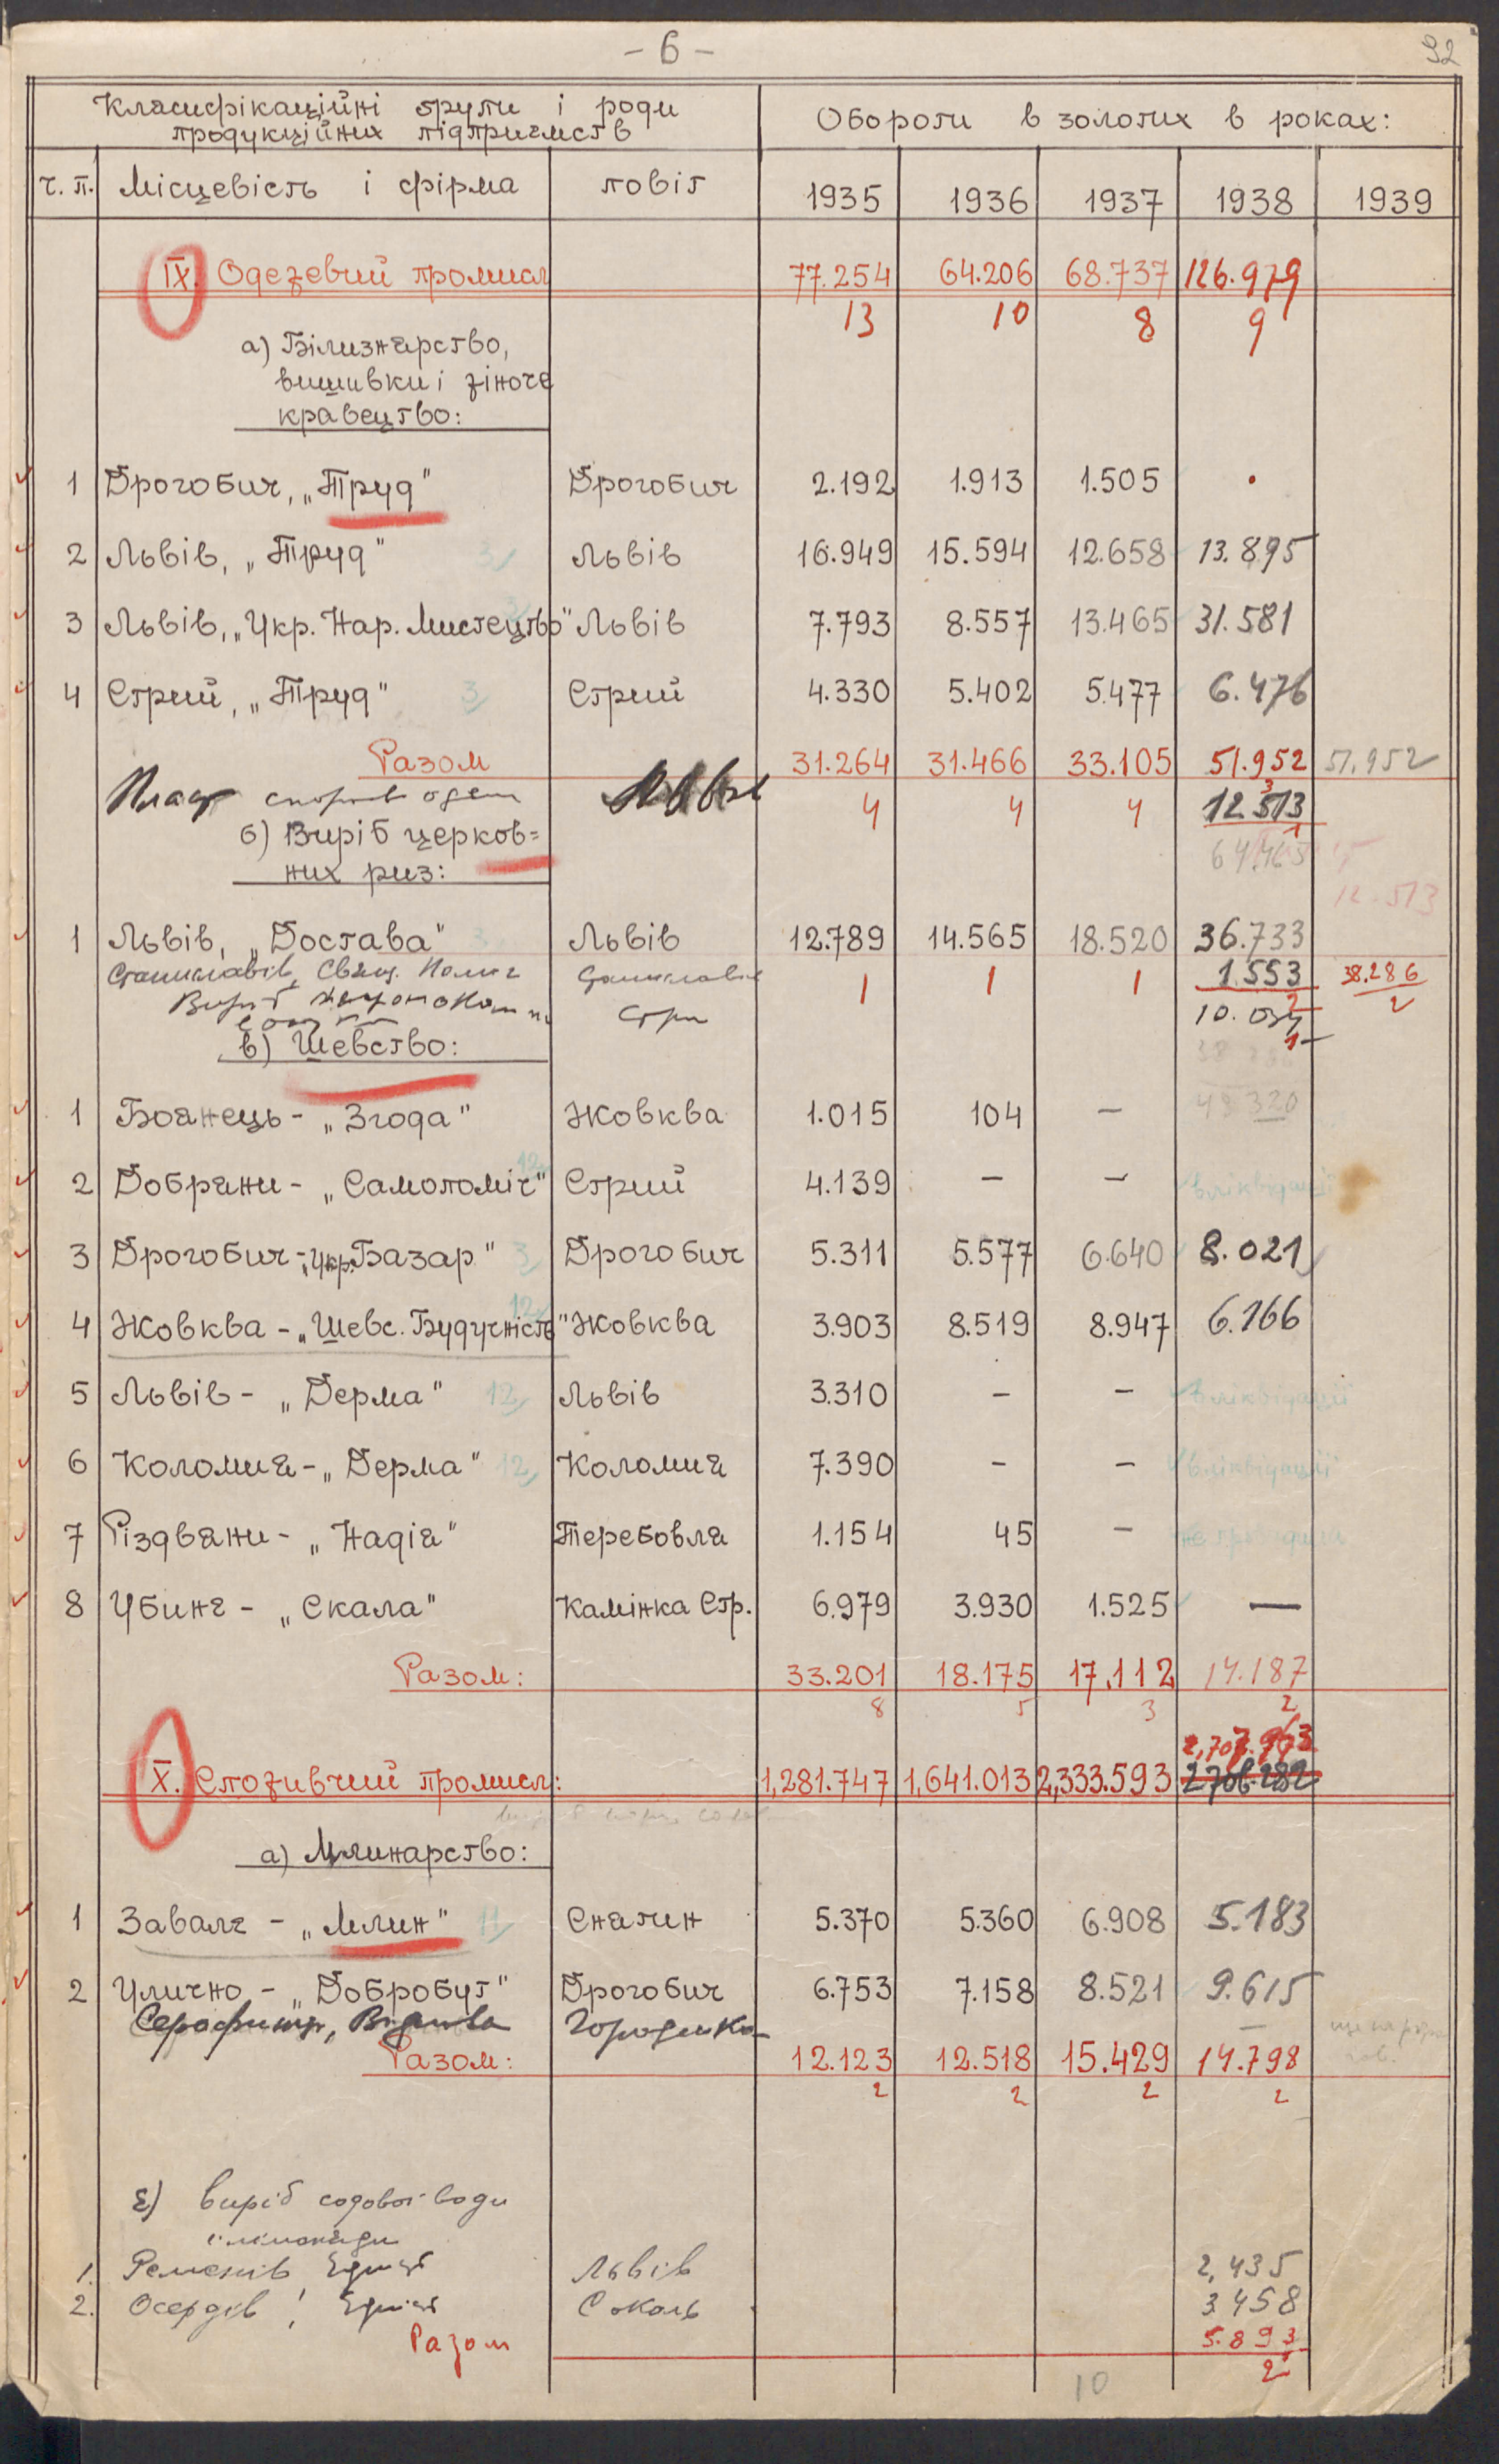 - 6 -
92
Класифікаційні групи і роди
продукційних підприємств
Обороти в золотих в роках:
ч. п. Місцевість і фірма повіт 1935 1936 1937 1938 1939
IX. Одежевий промисл 77.254 64.206 68.737 126.979
13 10 8 9
а) Білизнярство,
вишивки і жіноче
кравецтво:
1 Дрогобич, „Труд" Дрогобич 2.192 1.913 1.505 .
2 Львів, „Труд" 3 Львів 16.949 15.594 12.658 13.895
3 Львів, „Укр. Нар. Мистецтво" Львів 7.793 8.557 13.465 31.581
4 Стрий, „Труд" 3 Стрий 4.330 5.402 5.477 6.476
Разом 31.264 31.466 33.105 51.952 51.952
3
4 4 4 12.513
1
б) Виріб церков=
них риз:
64.465
12.513
1 Львів, „Достава" 3 Львів 12.789 14.565 18.520 36.733
Станиславів, Станиславів 1 1 1 1.553 38.286
Виріб 2 2
10.034
1
в) Шевство:
1 Боянець - „Згода" Жовква 1.015 104 — 48.320
2 Добряни - „Самопоміч" 12 Стрий 4.139 — — в ліквідації
3 Дрогобич - „Укр. Базар" 3 Дрогобич 5.311 5.577 6.640 8.021
4 Жовква - „Шевс. Будучність" 12 Жовква 3.903 8.519 8.947 6.166
5 Львів - „Дерма" 12 Львів 3.310 — — в ліквідації
6 Коломия - „Дерма" 12 Коломия 7.390 — — в ліквідації
7 Різдвяни - „Надія" Теребовля 1.154 45 —
8 Убинє - „Скала" Камінка Стр. 6.979 3.930 1.525 —
Разом: 33.201 18.175 17.112 14.187
8 5 3 2
2,707.963
X. Споживчий промисл: 1,281.747 1,641.013 2,333.593 2706.282
а) Млинарство:
1 Завалє - „Млин" 11 Снятин 5.370 5.360 6.908 5.183
2 Улично - „Добробут" Дрогобич 6.753 7.158 8.521 9.615
Серафинці, Городенка —
Разом: 12.123 12.518 15.429 14.798
2 2 2 2
є) виріб содової води
і лимонади
1. Ременів, Єдність Львів 2,435
2. Осердів, Єдність Сокаль 3.458
Разом 5.893
2
10